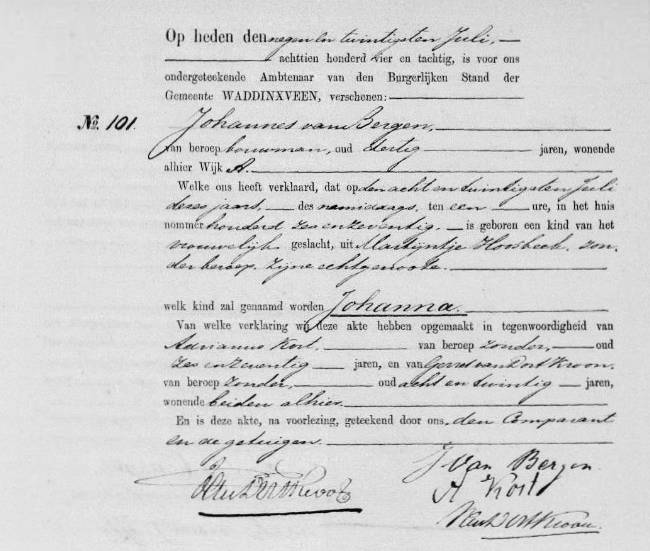 Op heden den negen en twintigsten Juli,
achttien honderd vier en tachtig, is voor ons
ondergeteekende Ambtenaar van den Burgerlijken Stand der
Gemeente WADDINXVEEN, verschenen:
No. 101.
Johannes van Bergen,
van beroep bouwman, oud dertig jaren, wonende
alhier Wijk A.
Welke ons heeft verklaard, dat op den acht en twintigsten Juli
dezes jaars, des namiddags ten een ure, in het huis
nommer honderd zes en zeventig, is geboren een kind van het
vrouwelijk geslacht, uit Martijntje Hoosbeek, zon,
der beroep, zijne echtgenoote.
welk kind zal genaamd worden Johanna.
Van welke verklaring wij deze akte hebben opgemaakt in tegenwoordigheid van
Adrianus Kort, van beroep zonder, oud
zes en zeventig jaren, en van Gerret van Dort Kroon,
van beroep zonder, oud acht en twintig jaren,
wonende beiden alhier.
En is deze akte, na voorlezing, geteekend door ons, den Comparant
en de getuigen.
J van Bergen
A Kort
van Dort Kroon